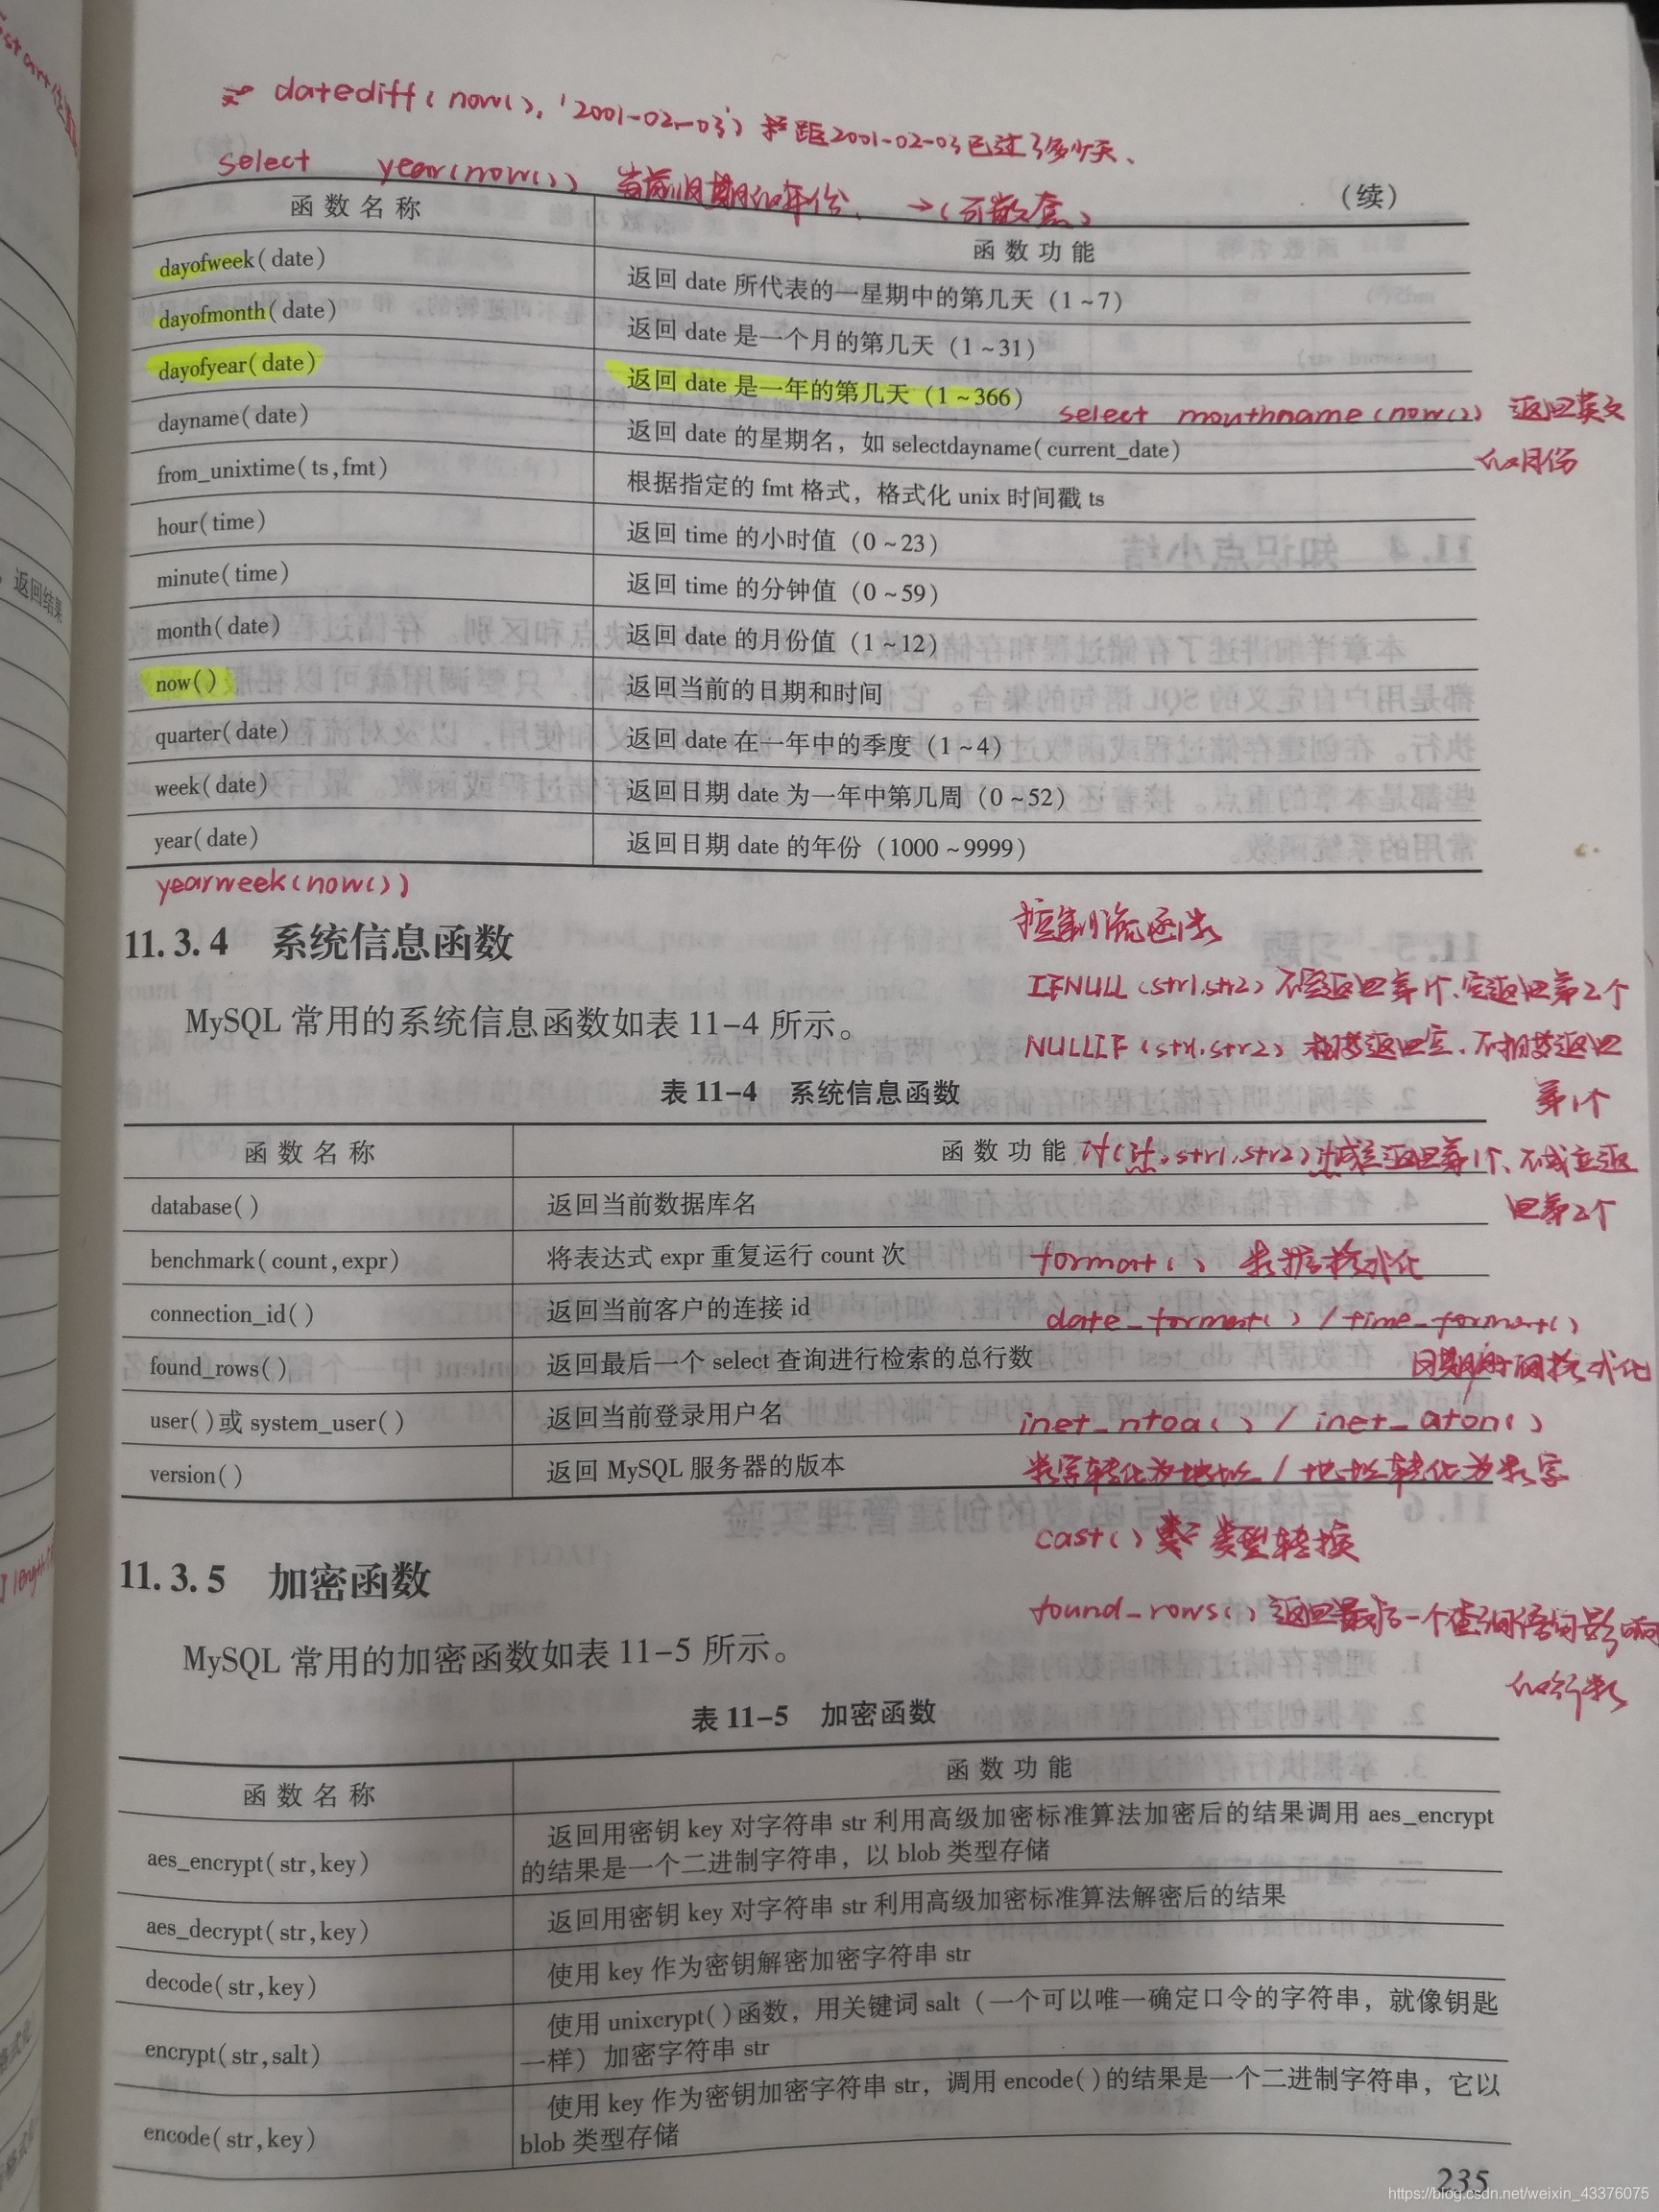 datediff(now(), '2001-02-03') 距2001-02-03已过了多少天、
select year(now()) 当前日期的年份、 →(可嵌套)
(续)
函数名称 函数功能
dayofweek(date) 返回 date 所代表的一星期中的第几天（1~7）
dayofmonth(date) 返回 date 是一个月的第几天（1~31）
dayofyear(date) 返回 date 是一年的第几天（1~366）
select mouthname(now()) 返回英文
的月份
dayname(date) 返回 date 的星期名，如 selectdayname(current_date)
from_unixtime(ts,fmt) 根据指定的 fmt 格式，格式化 unix 时间戳 ts
hour(time) 返回 time 的小时值（0~23）
minute(time) 返回 time 的分钟值（0~59）
month(date) 返回 date 的月份值（1~12）
now() 返回当前的日期和时间
quarter(date) 返回 date 在一年中的季度（1~4）
week(date) 返回日期 date 为一年中第几周（0~52）
year(date) 返回日期 date 的年份（1000~9999）
yearweek(now())
11.3.4 系统信息函数
MySQL 常用的系统信息函数如表 11-4 所示。
控制流函数
IFNULL(str1,str2) 不空返回第1个、空返回第2个
NULLIF(str1,str2) 相等返回空、不相等返回
第1个
表 11-4 系统信息函数
函数名称 函数功能
if( ,str1,str2) 成立返回第1个、不成立返
回第2个
database() 返回当前数据库名
benchmark(count,expr) 将表达式 expr 重复运行 count 次
format() 数据格式化
connection_id() 返回当前客户的连接 id
date_format() / time_format()
日期时间格式化
found_rows() 返回最后一个 select 查询进行检索的总行数
user()或 system_user() 返回当前登录用户名
inet_ntoa() / inet_aton()
version() 返回 MySQL 服务器的版本
数字转化为地址 / 地址转化为数字
cast() 类型转换
found_rows() 返回最后一个查询语句影响
的行数
11.3.5 加密函数
MySQL 常用的加密函数如表 11-5 所示。
表 11-5 加密函数
函数名称 函数功能
aes_encrypt(str,key) 返回用密钥 key 对字符串 str 利用高级加密标准算法加密后的结果调用 aes_encrypt
的结果是一个二进制字符串，以 blob 类型存储
aes_decrypt(str,key) 返回用密钥 key 对字符串 str 利用高级加密标准算法解密后的结果
decode(str,key) 使用 key 作为密钥解密加密字符串 str
encrypt(str,salt) 使用 unixcrypt()函数，用关键词 salt（一个可以唯一确定口令的字符串，就像钥匙
一样）加密字符串 str
encode(str,key) 使用 key 作为密钥加密字符串 str，调用 encode()的结果是一个二进制字符串，它以
blob 类型存储
235
返回结果
https://blog.csdn.net/weixin_43376075